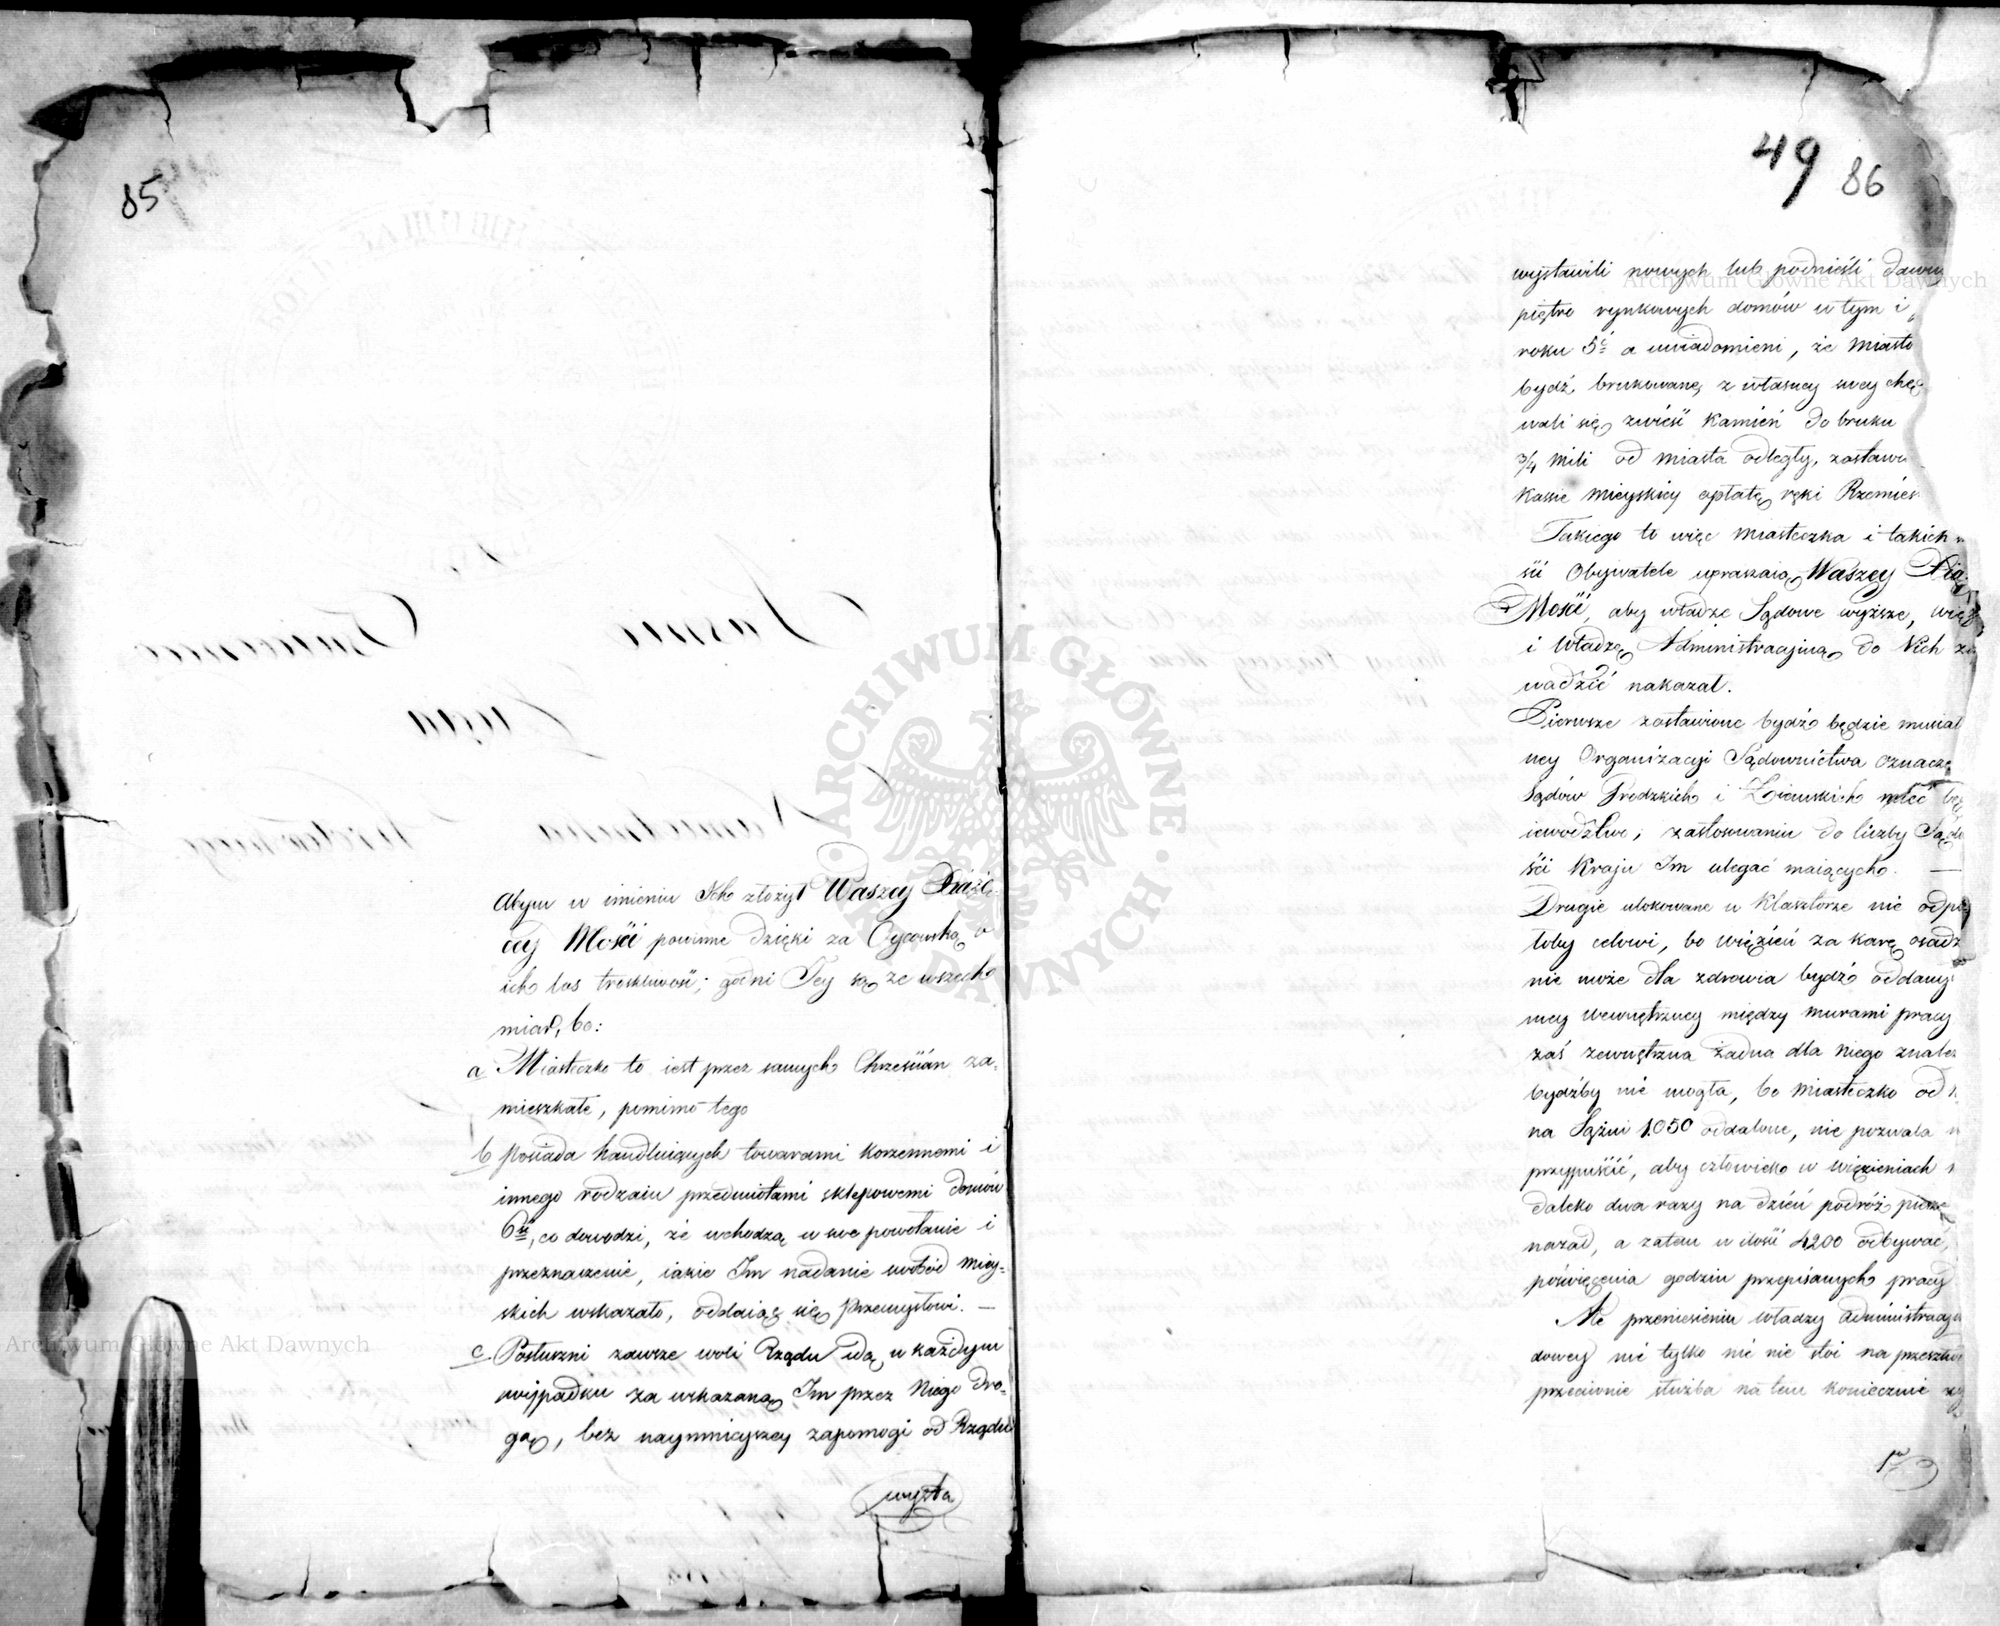 85
Abym w imieniu Ich złożył Waszey Xiążę-
cey Mości powinne dzięki za Oycowską o
ich los troskliwość; godni Jey są ze wszech
miar, bo:
a Miasteczko to iest przez samych Chrześcian za-
mieszkałe, pomimo tego
b posiada handluiących towarami korzennemi i
innego rodzaiu przedmiotami sklepowemi domów
6ść, co dowodzi, że wchodzą w swe powołanie i
przeznaczenie, iakie Im nadanie swobód miey-
skich wskazało, oddaiąc się Przemysłowi. —
c Posłuszni zawsze woli Rządu idą, w każdym
wypadku za wskazaną Im przez Niego dro-
gą, bez naymnieyszey zapomogi od Rządu
wysta
49 86
wystawili nowych lub podnieśli dawn
piętro rynkowych domów w tym i
roku 5ć a uwiadomieni, że Miasto
bydź brukowane, z własney swey chęc
wali się zwieść Kamień do bruku
3/4 Mili od Miasta odległy, zostawu
Kassie Mieyskiey opłatę ręki Rzemieś
Takiego to więc Miasteczka i takich
ści Obywatele upraszaią Waszey Xią
Mości, aby władze Sądowe wyższe, więz
i Władzę Administracyjną do Nich za
wadzić nakazał.
Pierwsze zostawione bydź będzie musiał
ney Organizacyi Sądownictwa oznacze
Sądów Grodzkich i Ziemskich mieć bę
iewództwo, zastosowaniu do liczby Sądo
ści Kraju Im ulegać maiących. —
Drugie ulokowane w Klasztorze nie odpo
łoby celowi, bo więzień za karę osadz
nie może dla zdrowia bydź oddany
ney wewnętrzney między murami pracy
zaś zewnętrzna żadna dla niego znalez
bydźby nie mogła, bo Miasteczko od
na Sążni 1.050 oddalone, nie pozwala
przypuścić, aby człowiek w więzieniach
daleko dwa razy na dzień podróż piesz
nazad, a zatem w ilości 4200 odbywać,
poświęcenia godzin przepisanych pracy
Ale przeniesieniu Władzy Administracy
dowey nie tylko nic nie stoi na przeszko
przeciwnie służba na tem koniecznie